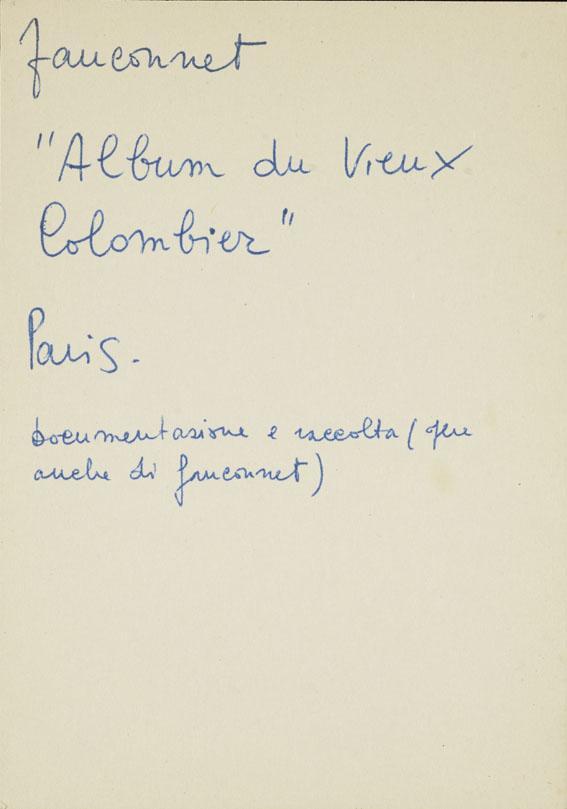 Fauconnet
"Album du Vieux
Colombier"
Paris.
Documentazione e raccolta (
anche di Fauconnet)